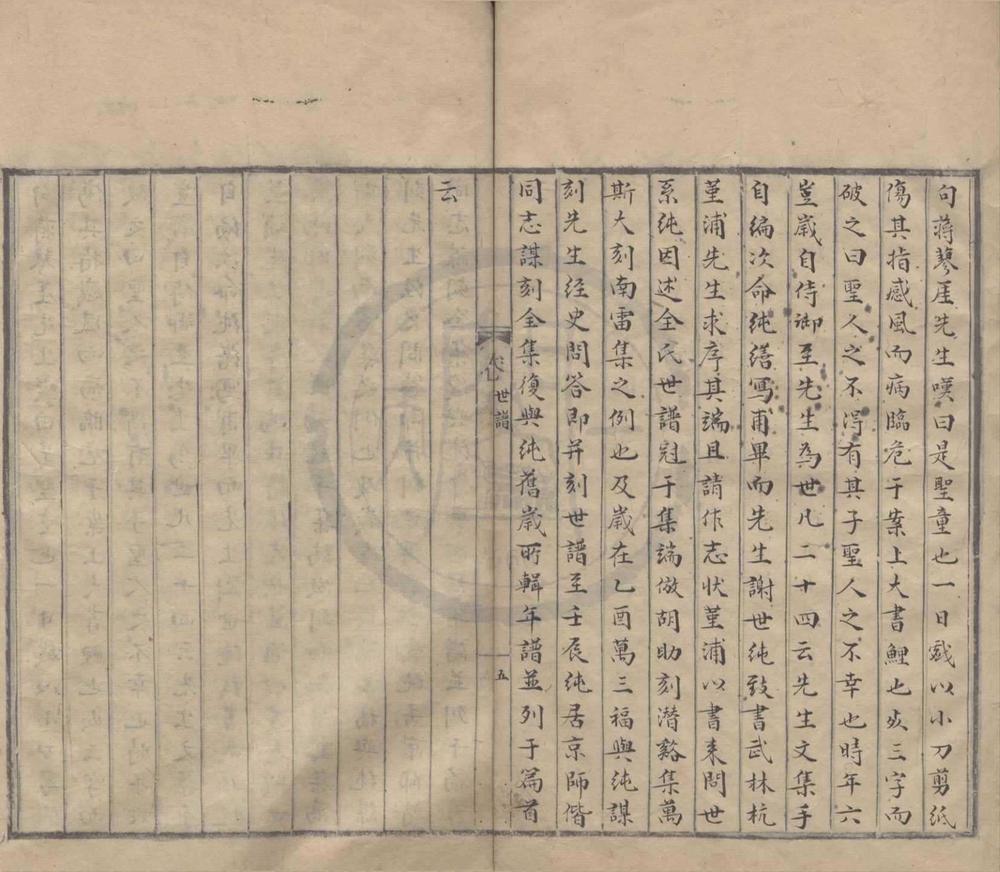 句蔣蓼厓先生嘆曰是聖童也一日戲以小刀剪紙
傷其指感風而病臨危于案上大書鯉也死三字而
破之曰聖人之不得有其子聖人之不幸也時年六
豈歲自侍御至先生為世凡二十四云先生文集手
自編次命純繕寫甫畢而先生謝世純致書武林杭
堇浦先生求序其端且請作志狀堇浦以書来問世
系純因述全氏世譜冠于集端倣胡助刻潛谿集萬
斯大刻南雷集之例也及歲在乙酉萬三福與純謀
刻先生經史問答即并刻世譜至壬辰純居京師偕
同志謀刻全集復與純舊歲所輯年譜並列于篇首
云
世譜
五